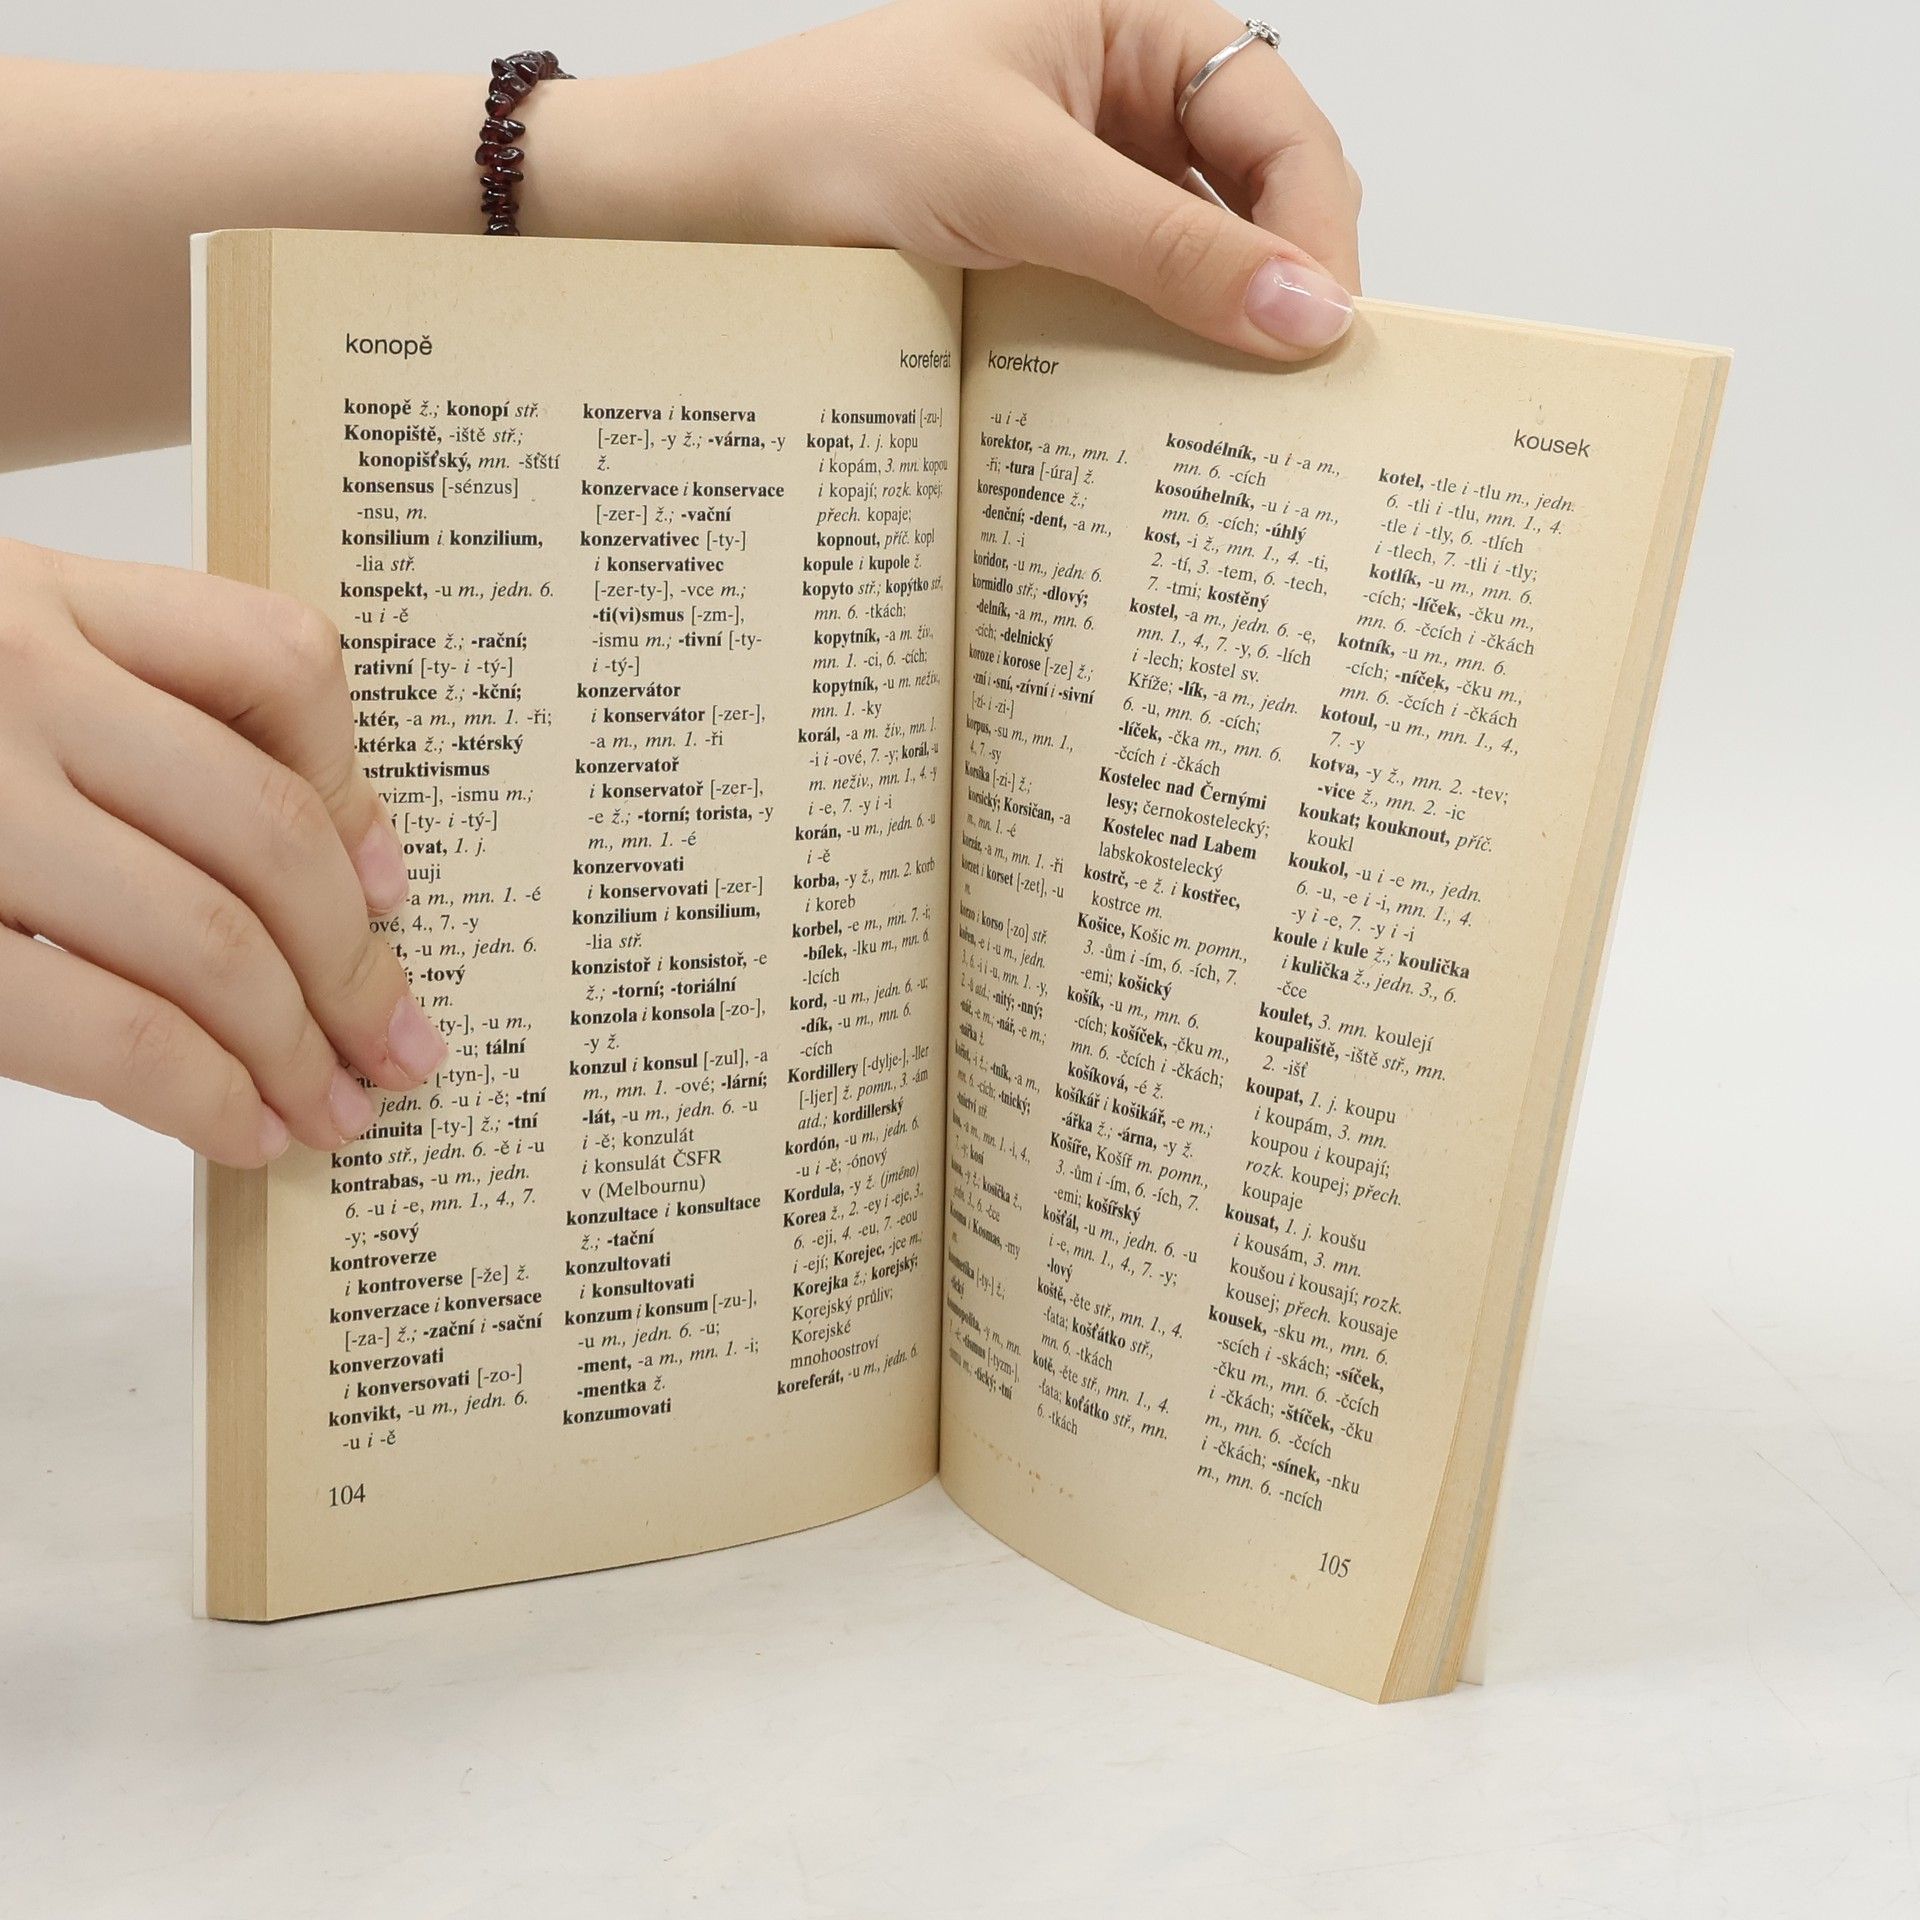 konopě
koreferát
konopě ž.; konopí stř.
Konopiště, -iště stř.;
konopišťský, mn. -šťští
konsensus [-sénzus]
-nsu, m.
konsilium i konzilium,
-lia stř.
konspekt, -u m., jedn. 6.
-u i -ě
konspirace ž.; -rační;
rativní [-ty- i -tý-]
onstrukce ž.; -kční;
-ktér, -a m., mn. 1. -ři;
-ktérka ž.; -ktérský
nstruktivismus
vizm-], -ismu m.;
[-ty- i -tý-]
ovat, 1. j.
uuji
-a m., mn. 1. -é
ové, 4., 7. -y
kt, -u m., jedn. 6.
; -tový
u m.
-ty-], -u m.,
-u; tální
[-tyn-], -u
jedn. 6. -u i -ě; -tní
tinuita [-ty-] ž.; -tní
konto stř., jedn. 6. -ě i -u
kontrabas, -u m., jedn.
6. -u i -e, mn. 1., 4., 7.
-y; -sový
kontroverze
i kontroverse [-že] ž.
konverzace i konversace
[-za-] ž.; -zační i -sační
konverzovati
i konversovati [-zo-]
konvikt, -u m., jedn. 6.
-u i -ě
konzerva i konserva
[-zer-], -y ž.; -várna, -y
ž.
konzervace i konservace
[-zer-] ž.; -vační
konzervativec [-ty-]
i konservativec
[-zer-ty-], -vce m.;
-ti(vi)smus [-zm-],
-ismu m.; -tivní [-ty-
i -tý-]
konzervátor
i konservátor [-zer-],
-a m., mn. 1. -ři
konzervatoř
i konservatoř [-zer-],
-e ž.; -torní; torista, -y
m., mn. 1. -é
konzervovati
i konservovati [-zer-]
konzilium i konsilium,
-lia stř.
konzistoř i konsistoř, -e
ž.; -torní; -toriální
konzola i konsola [-zo-],
-y ž.
konzul i konsul [-zul], -a
m., mn. 1. -ové; -lární;
-lát, -u m., jedn. 6. -u
i -ě; konzulát
i konsulát ČSFR
v (Melbournu)
konzultace i konsultace
ž.; -tační
konzultovati
i konsultovati
konzum i konsum [-zu-],
-u m., jedn. 6. -u;
-ment, -a m., mn. 1. -i;
-mentka ž.
konzumovati
i konsumovati [-zu-]
kopat, 1. j. kopu
i kopám, 3. mn. kopou
i kopají; rozk. kopej;
přech. kopaje;
kopnout, příč. kopl
kopule i kupole ž.
kopyto stř.; kopýtko stř.,
mn. 6. -tkách;
kopytník, -a m. živ.,
mn. 1. -ci, 6. -cích;
kopytník, -u m. neživ.,
mn. 1. -ky
korál, -a m. živ., mn. 1.
-i i -ové, 7. -y; korál, -u
m. neživ., mn. 1., 4. -y
i -e, 7. -y i -i
korán, -u m., jedn. 6. -u
i -ě
korba, -y ž., mn. 2. korb
i koreb
korbel, -e m., mn. 7. -i;
-bílek, -lku m., mn. 6.
-lcích
kord, -u m., jedn. 6. -u;
-dík, -u m., mn. 6.
-cích
Kordillery [-dylje-], -ller
[-ljer] ž. pomn., 3. -ám
atd.; kordillerský
kordón, -u m., jedn. 6.
-u i -ě; -ónový
Kordula, -y ž. (jméno)
Korea ž., 2. -ey i -eje, 3.,
6. -eji, 4. -eu, 7. -eou
i -ejí; Korejec, -jce m.;
Korejka ž.; korejský;
Korejský průliv;
Korejské
mnohoostroví
koreferát, -u m., jedn. 6.
104
korektor
kousek
-u i -ě
korektor, -a m., mn. 1.
-ři; -tura [-úra] ž.
korespondence ž.;
-denční; -dent, -a m.,
mn. 1. -i
koridor, -u m., jedn. 6.
kormidlo stř.; -dlový;
-delník, -a m., mn. 6.
-cích; -delnický
koroze i korose [-ze] ž.;
-zní i -sní, -zívní i -sivní
[-zi- i -zi-]
korpus, -su m., mn. 1.,
4., 7. -sy
Korsika [-zi-] ž.;
korsický; Korsičan, -a
m., mn. 1. -é
korzár, -a m., mn. 1. -ři
korzet i korset [-zet], -u
m.
korzo i korso [-zo] stř.
kořen, -e i -u m., jedn.
3., 6. -i i -u, mn. 1. -y,
-nitý; -nný;
kosa, -y ž.; kosička ž.,
jedn. 3., 6. -čce
kosmetika [-ty-] ž.;
kosodélník, -u i -a m.,
mn. 6. -cích
kosoúhelník, -u i -a m.,
mn. 6. -cích; -úhlý
kost, -i ž., mn. 1., 4. -ti,
2. -tí, 3. -tem, 6. -tech,
7. -tmi; kostěný
kostel, -a m., jedn. 6. -e,
mn. 1., 4., 7. -y, 6. -lích
i -lech; kostel sv.
Kříže; -lík, -a m., jedn.
6. -u, mn. 6. -cích;
-líček, -čka m., mn. 6.
-čcích i -čkách
Kostelec nad Černými
lesy; černokostelecký;
Kostelec nad Labem
labskokostelecký
kostrč, -e ž. i kostřec,
kostrce m.
Košice, Košic m. pomn.,
3. -ům i -ím, 6. -ích, 7.
-emi; košický
košík, -u m., mn. 6.
-cích; košíček, -čku m.,
mn. 6. -čcích i -čkách;
košíková, -é ž.
košíkář i košikář, -e m.;
-ářka ž.; -árna, -y ž.
Košíře, Košíř m. pomn.,
3. -ům i -ím, 6. -ích, 7.
-emi; košířský
košťál, -u m., jedn. 6. -u
i -e, mn. 1., 4., 7. -y;
-lový
koště, -ěte stř., mn. 1., 4.
-ťata; košťátko stř.,
mn. 6. -tkách
kotě, -ěte stř., mn. 1., 4.
-ťata; koťátko stř., mn.
6. -tkách
kotel, -tle i -tlu m., jedn.
6. -tli i -tlu, mn. 1., 4.
-tle i -tly, 6. -tlích
i -tlech, 7. -tli i -tly;
kotlík, -u m., mn. 6.
-cích; -líček, -čku m.,
mn. 6. -čcích i -čkách
kotník, -u m., mn. 6.
-cích; -níček, -čku m.,
mn. 6. -čcích i -čkách
kotoul, -u m., mn. 1., 4.,
7. -y
kotva, -y ž., mn. 2. -tev;
-vice ž., mn. 2. -ic
koukat; kouknout, příč.
koukl
koukol, -u i -e m., jedn.
6. -u, -e i -i, mn. 1., 4.
-y i -e, 7. -y i -i
koule i kule ž.; koulička
i kulička ž., jedn. 3., 6.
-čce
koulet, 3. mn. koulejí
koupaliště, -iště stř., mn.
2. -išť
koupat, 1. j. koupu
i koupám, 3. mn.
koupou i koupají;
rozk. koupej; přech.
koupaje
kousat, 1. j. koušu
i kousám, 3. mn.
koušou i kousají; rozk.
kousej; přech. kousaje
kousek, -sku m., mn. 6.
-scích i -skách; -síček,
-čku m., mn. 6. -čcích
i -čkách; -štíček, -čku
m., mn. 6. -čcích
i -čkách; -sínek, -nku
m., mn. 6. -ncích
105